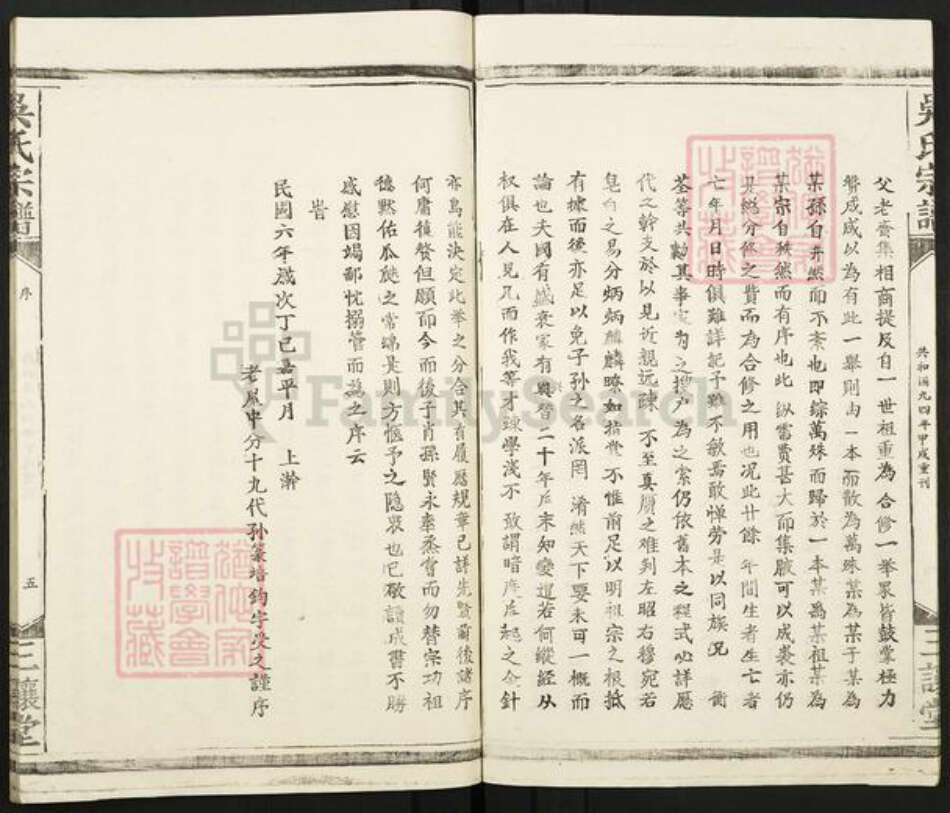 吳氏宗譜
共和国九四年甲戌重刊
三讓堂
父老齊集相商提及自一世祖重為合修一舉眾皆鼓掌極力
贊成咸以為有此一舉則由一本而散為萬殊某為某子某為
某孫自井然而不紊也即綜萬殊而歸於一本某為某祖某為
某宗自秩然而有序也此縱需費甚大而集腋可以成裘亦仍
吳總分修之費而為合修之用也况此廿餘年間生者生亡者
亡年月日時俱難詳記予雖不敏焉敢憚勞是以同族况 衡
荃等共勷其事家为之搜户為之索仍依舊本之程式必詳歷
代之幹支於以見近親远疎不至真贋之难到左昭右穆宛若
皂白之易分炳炳麟麟瞭如指掌不惟前足以明祖宗之根抵
有據而後亦足以免子孫之各派罔淆然天下要未可一概而
論也夫國有盛衰家有興替二十年后未知變遷若何縱經从
权俱在人見几而作我等才疎學淺不敢謂暗度后起之金針
亦烏能決定此举之分合其有履歷規章已詳先賢前後諸序
何庸復贅但願而今而後子肖孫賢永奉烝嘗而勿替宗功祖
德默佑瓜瓞之常綿是則方惬予之隐衷也已敬讀成書不勝
感慰因竭鄙忱搦管而為之序云
旹
民國六年歲次丁巳嘉平月 上澣
老鳳中分十九代孙篆培鈞字受之謹序
吳氏宗譜
序
五
三讓堂
FamilySearch